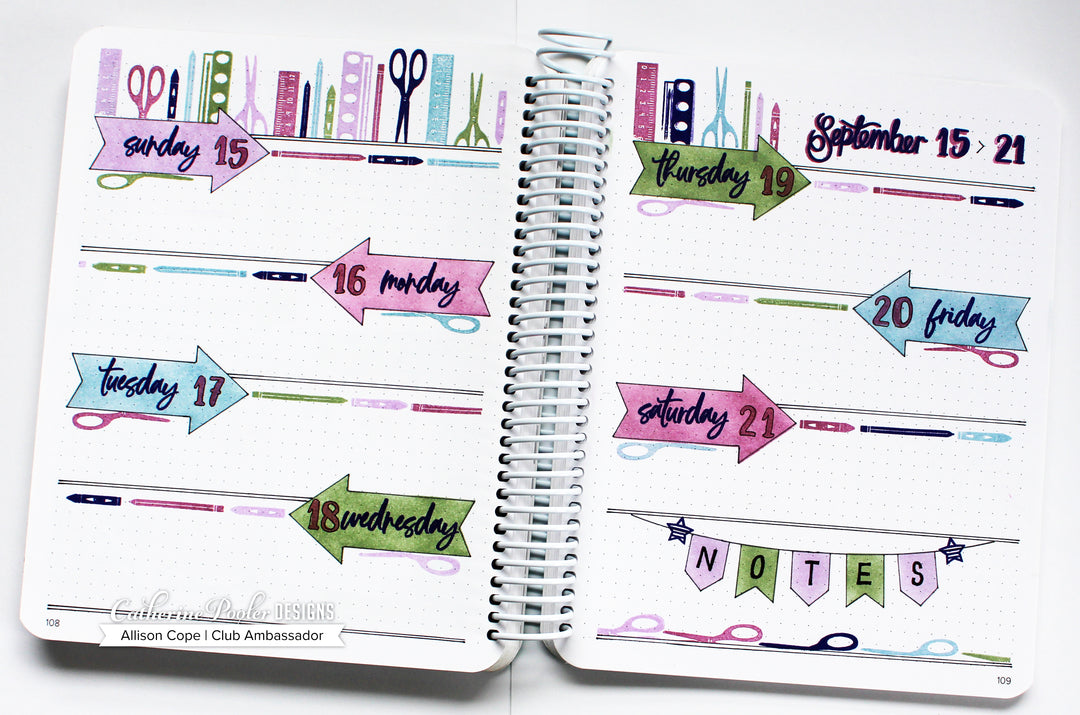 sunday 15
16 monday
tuesday 17
18 wednesday
Catherine Pooler DESIGNS
Allison Cope | Club Ambassador
108
September 15 > 21
thursday 19
20 friday
saturday 21
NOTES
109